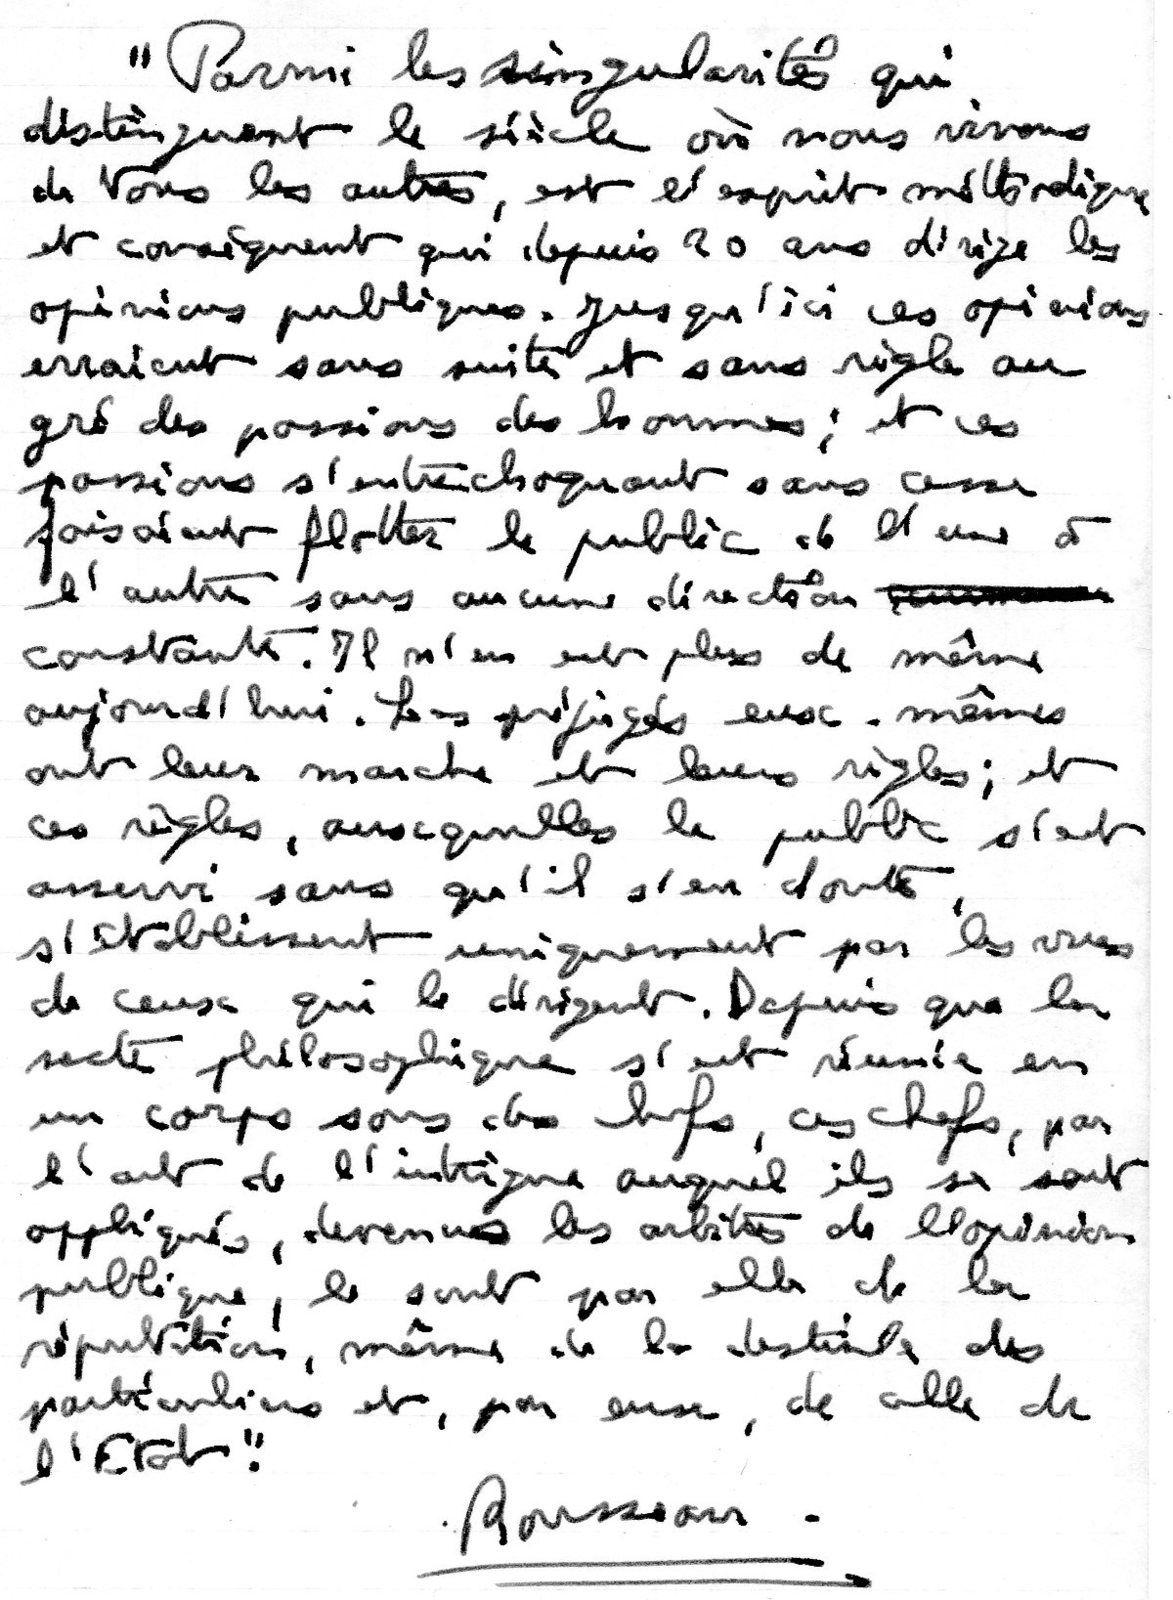 "Parmi les singularités qui
distinguent le siècle où nous vivons
de tous les autres, est l'esprit méthodique
et conséquent qui depuis 20 ans dirige les
opinions publiques. Jusqu'ici ces opinions
erraient sans suite et sans règle au
gré des passions des hommes; et ces
passions s'entrechoquant sans cesse
faisaient flotter le public de l'une à
l'autre sans aucune direction
constante. Il n'en est plus de même
aujourd'hui. Les préjugés eux-mêmes
ont leur marche et leurs règles; et
ces règles, auxquelles le public s'est
asservi sans qu'il s'en doute,
s'établissent uniquement par les vues
de ceux qui le dirigent. Depuis que la
secte philosophique s'est réunie en
un corps sous des chefs, ces chefs, par
l'art de l'intrigue auquel ils se sont
appliqués, devenus les arbitres de l'opinion
publique, le sont par elle de la
réputation, même de la destinée des
particuliers et, par eux, de celle de
l'Etat".
Rousseau.